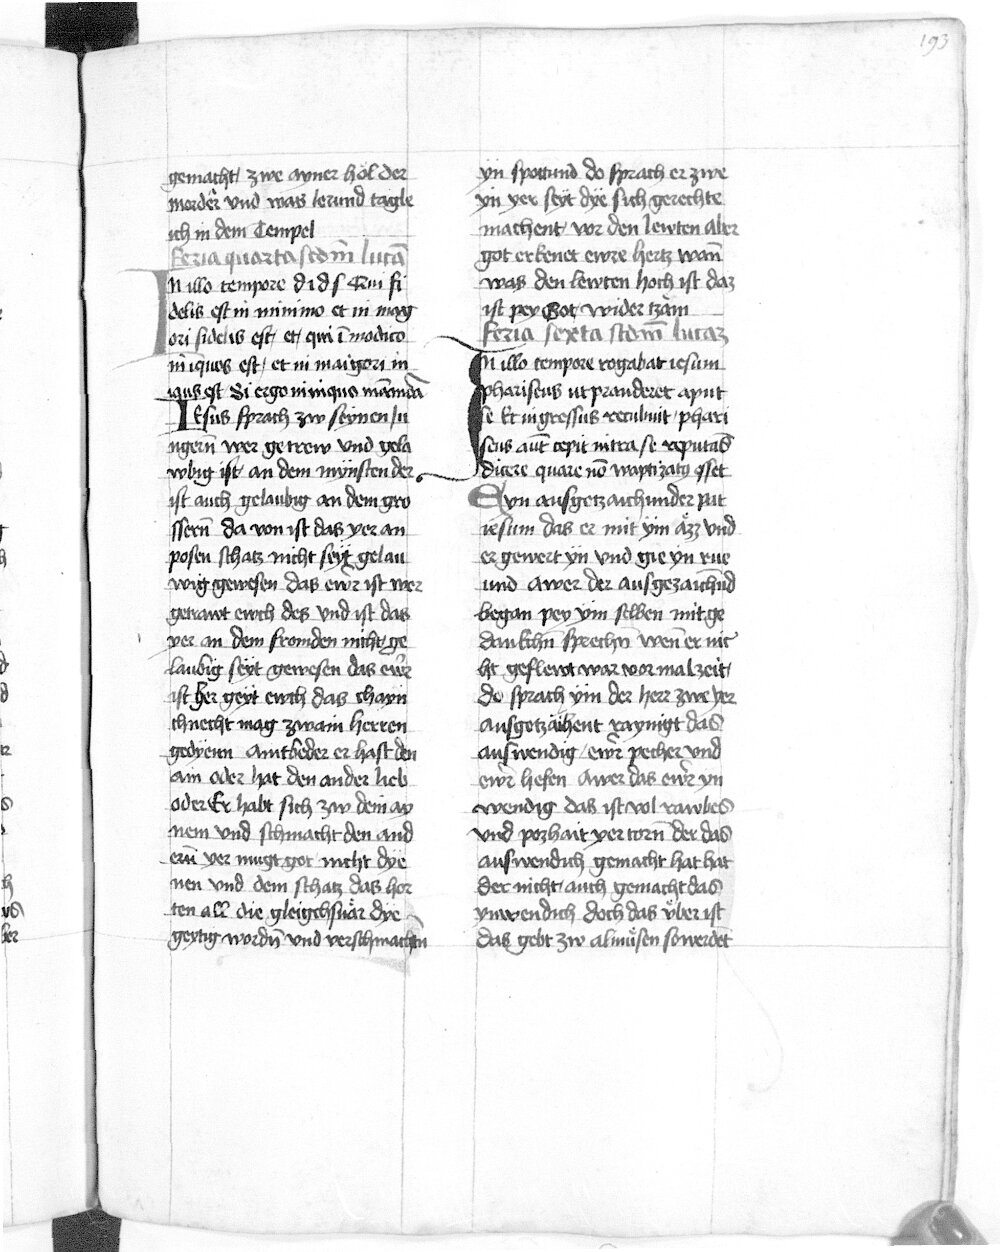 193
gemacht / zwe ayner höl der
morder̄ vnd was lerund tagle
ich in dem Tempel
Feria quarta scdm̄ lucā
In illo tempore d i d s Qui fi
delis est in minimo et in mag
ori fidelis est / et / qui ī modico
iniquus est / et in maigori in
iqus est Si ergo in iniquo mām̄ona
Iesus sprach zw seynen Iu
ngern̄ wer getrew vnd gela
wbig ist / an dem mynsten der
ist auch gelaubig an dem gro
ssern̄ da von ist das yer an
posen schatz nicht seyt gelau
wig gewesen das ewr̄ ist wer
getrawt ewch des vnd ist das
yer an dem fromden nicht / ge
laubig seyt gewesen das ewr̄
ist her geyt ewch das chayn
chnecht mag zwain herren
gedyenn Antbeder er hast den
ain oder hat den ander lieb
oder Er habt sich zw dem ay
nem vnd schmacht den and
ern̄ yer mugt got nicht dye
nen vnd dem schatz das hor
ten all die gleigchsnär dye
geytig wordn̄ vnd verschmachtn̄
yn spottund do sprach er zwe
yn yer seyt dye sich gerechte
machent / vor den lewten aber
got erkenet ewre hertz wan̄
was den lewten hoch ist daz
ist pey Got / wider tzäm
Feria sexta scdm̄ lucaz
In illo tempore rogabat iesum
phariseus ut pranderet aput
se Et ingressus recubuit / phari
seus aut̄ cepit intra / se reputās
dicere quare nō waptizatꝫ esset
Eyn ausgetzaichunder pat
iesum das er mit ym äzz vnd
er gewert yn vnd gie yn rue
und awer der ausgezaichn̄d
began pey ym selben mit ge
dankchn̄ sprechn̄ wen̄ er nic
ht geflewt war vor malzeit /
do sprach ym der herr zwe yer
ausgetzaihent raynigt das
auswendig / ewr̄ pecher vnd
ewr̄ hefen Awer das ewr̄ yn
wendig das ist vol rawbes
vnd pozhait yer torn̄ der das
auswendich gemacht hat hat
der nicht / auch gemacht das
ynwendich doch das vber ist
das gebt zw almüsen so werdet